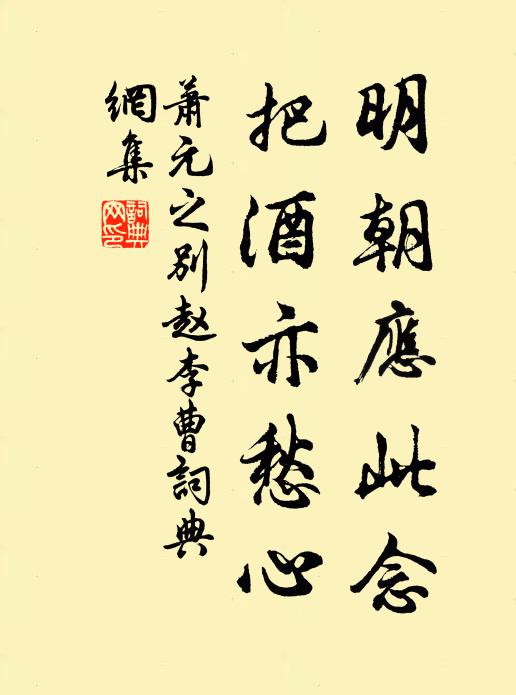 明朝應此念
把酒亦愁心
蕭元之别赵李曹詞典
網集
詞典
网印